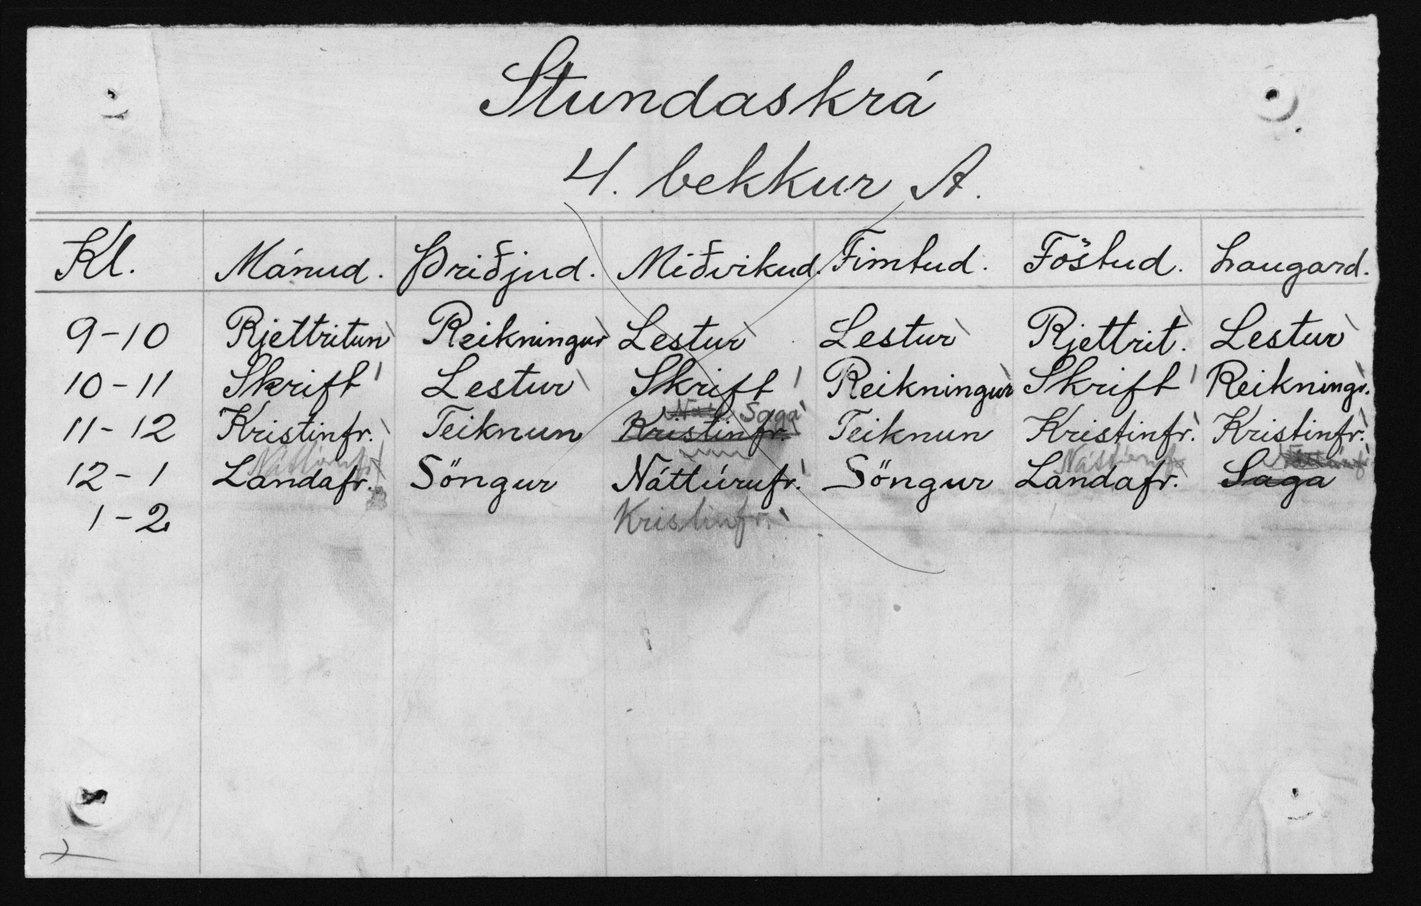 Stundaskrá
4. bekkur A.
Kl. Mánud. Þriðjud. Miðvikud. Fimtud. Föstud. Laugard.
9-10 Rjettritun Reikningur Lestur Lestur Rjettrit. Lestur
10-11 Skrift Lestur Skrift Reikningur Skrift Reikningr.
Saga
11-12 Kristinfr. Teiknun Kristinfr. Teiknun Kristinfr. Kristinfr.
Náttúrufr. Náttúrufr. Náttúrufr.
12-1 Landafr. Söngur Náttúrufr. Söngur Landafr. Saga
1-2 Kristinfr.